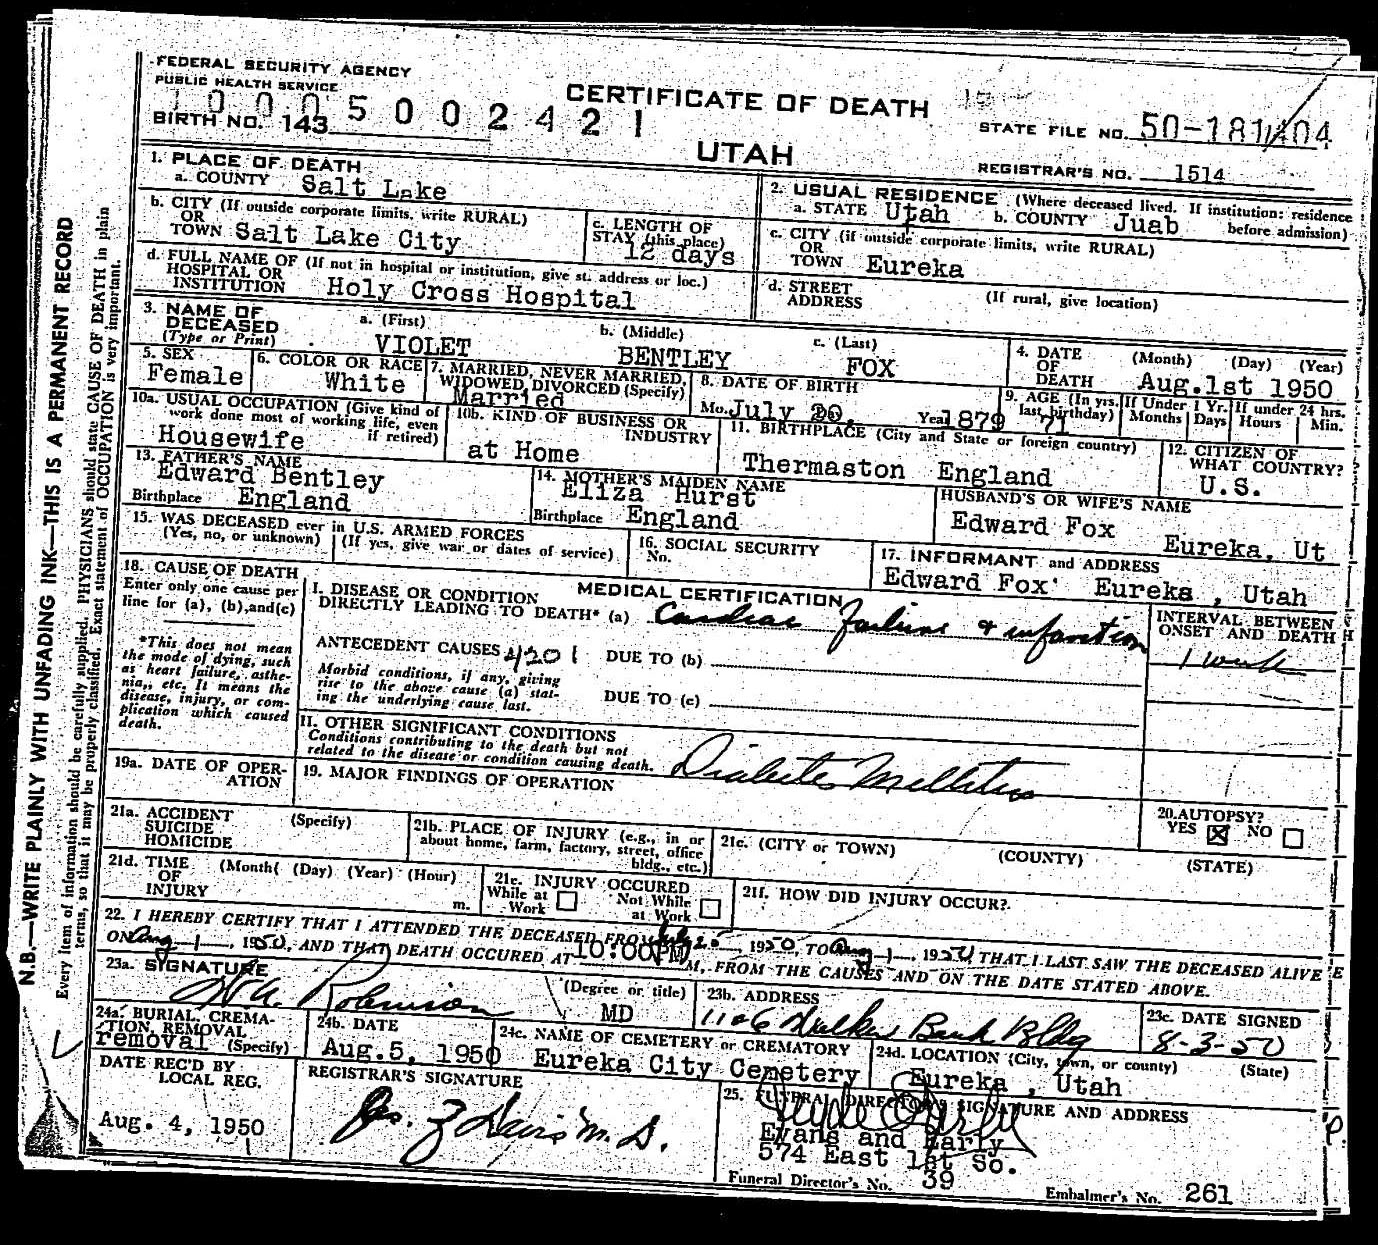 FEDERAL SECURITY AGENCY
PUBLIC HEALTH SERVICE
10005002421
BIRTH NO. 143
CERTIFICATE OF DEATH
UTAH
STATE FILE NO. 50-181404
REGISTRAR'S NO. 1514
N.B.—WRITE PLAINLY WITH UNFADING INK—THIS IS A PERMANENT RECORD
Every item of information should be carefully supplied. PHYSICIANS should state CAUSE OF DEATH in plain
terms, so that it may be properly classified. Exact statement of OCCUPATION is very important.
1. PLACE OF DEATH
a. COUNTY Salt Lake
b. CITY (If outside corporate limits, write RURAL)
OR
TOWN Salt Lake City
c. LENGTH OF
STAY (this place)
12 days
d. FULL NAME OF (If not in hospital or institution, give st. address or loc.)
HOSPITAL OR
INSTITUTION Holy Cross Hospital
2. USUAL RESIDENCE (Where deceased lived. If institution: residence
before admission)
a. STATE Utah b. COUNTY Juab
c. CITY (if outside corporate limits, write RURAL)
OR
TOWN Eureka
d. STREET
ADDRESS
(If rural, give location)
3. NAME OF
DECEASED
(Type or Print)
a. (First) b. (Middle) c. (Last)
VIOLET BENTLEY FOX
4. DATE
OF
DEATH
(Month) (Day) (Year)
Aug.1st 1950
5. SEX
Female
6. COLOR OR RACE
White
7. MARRIED, NEVER MARRIED,
WIDOWED, DIVORCED (Specify)
Married
8. DATE OF BIRTH
Mo. July Day 20, Year 1879
9. AGE (In yrs.
last birthday) 71
If Under 1 Yr.
Months Days
If under 24 hrs.
Hours Min.
10a. USUAL OCCUPATION (Give kind of
work done most of working life, even
if retired)
Housewife
10b. KIND OF BUSINESS OR
INDUSTRY
at Home
11. BIRTHPLACE (City and State or foreign country)
Thermaston England
12. CITIZEN OF
WHAT COUNTRY?
U.S.
13. FATHER'S NAME
Edward Bentley
Birthplace England
14. MOTHER'S MAIDEN NAME
Eliza Hurst
Birthplace England
HUSBAND'S OR WIFE'S NAME
Edward Fox
Eureka, Ut
15. WAS DECEASED ever in U.S. ARMED FORCES
(Yes, no, or unknown) (If yes, give war or dates of service)
16. SOCIAL SECURITY
No.
17. INFORMANT and ADDRESS
Edward Fox' Eureka , Utah
18. CAUSE OF DEATH
Enter only one cause per
line for (a), (b), and (c)
*This does not mean
the mode of dying, such
as heart failure, asthe-
nia, etc. It means the
disease, injury, or com-
plication which caused
death.
MEDICAL CERTIFICATION
I. DISEASE OR CONDITION
DIRECTLY LEADING TO DEATH* (a) Cardiac Failure & infarction
ANTECEDENT CAUSES 4201 DUE TO (b)
Morbid conditions, if any, giving
rise to the above cause (a) stat-
ing the underlying cause last.
DUE TO (c)
INTERVAL BETWEEN
ONSET AND DEATH
1 week
II. OTHER SIGNIFICANT CONDITIONS
Conditions contributing to the death but not
related to the disease or condition causing death.
Diabetes Mellitus
19a. DATE OF OPER-
ATION
19. MAJOR FINDINGS OF OPERATION
20. AUTOPSY?
YES ☒ NO ☐
21a. ACCIDENT (Specify)
SUICIDE
HOMICIDE
21b. PLACE OF INJURY (e.g., in or
about home, farm, factory, street, office
bldg., etc.)
21c. (CITY or TOWN) (COUNTY) (STATE)
21d. TIME (Month( (Day) (Year) (Hour)
OF
INJURY m.
21e. INJURY OCCURED
While at Work ☐ Not While at Work ☐
21f. HOW DID INJURY OCCUR?
22. I HEREBY CERTIFY THAT I ATTENDED THE DECEASED FROM July 25, 1950, TO Aug 1, 1950 THAT I LAST SAW THE DECEASED ALIVE
ON Aug 1, 1950, AND THAT DEATH OCCURED AT 10:00PM M., FROM THE CAUSES AND ON THE DATE STATED ABOVE.
23a. SIGNATURE (Degree or title)
Robinson MD
23b. ADDRESS
1106 Walker Bank Bldg
23c. DATE SIGNED
8-3-50
24a. BURIAL, CREMA-
TION, REMOVAL
removal (Specify)
24b. DATE
Aug.5, 1950
24c. NAME OF CEMETERY or CREMATORY
Eureka City Cemetery
24d. LOCATION (City, town, or county) (State)
Eureka , Utah
DATE REC'D BY
LOCAL REG.
Aug. 4, 1950
REGISTRAR'S SIGNATURE
Jas. Z Davis M.D.
25. FUNERAL DIRECTOR'S SIGNATURE AND ADDRESS
Evans and Early
574 East 1st So.
Funeral Director's No. 39
Embalmer's No. 261